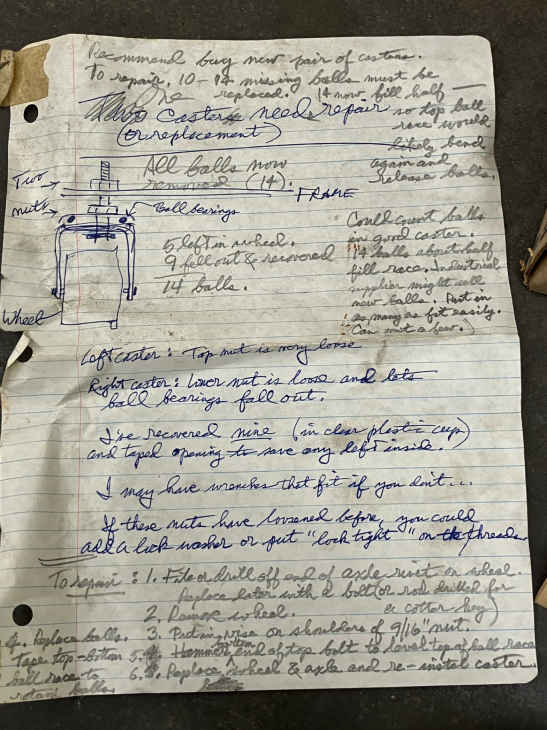 Recommend buy new pair of casters.
To repair, 10-14 missing balls must be
replaced. 14 now fill half —
so top ball
race would
likely bend
again and
release balls.
Casters need repair
(or replacement)
All balls now
removed (14).
FRAME
Two
nuts
Ball bearings
5 left in wheel.
9 fell out & recovered
14 balls.
Wheel
Could count balls
in good caster.
14 balls about half
fill race. Industrial
supplier might sell
new balls. Put in
as many as fit easily.
(Can omit a few.)
Left caster: Top nut is very loose
Right caster: Lower nut is loose and lots
ball bearings fall out.
I've recovered nine (in clear plastic cup)
and taped opening to save any left inside.
I may have wrenches that fit if you don't...
If these nuts have loosened before, you could
add a lock washer or put "lock tight" on the threads.
To repair: 1. File or drill off end of axle rivet on wheel.
Replace later with a bolt (or rod drilled for
a cotter key)
2. Remove wheel.
3. Put in vise or shoulders of 9/16" nut.
4. Replace balls.
Tape top-bottom
ball race to
retain balls.
5. Hammer bottom end of top bolt to level top of ball race
6. Replace wheel & axle and re-instal caster.